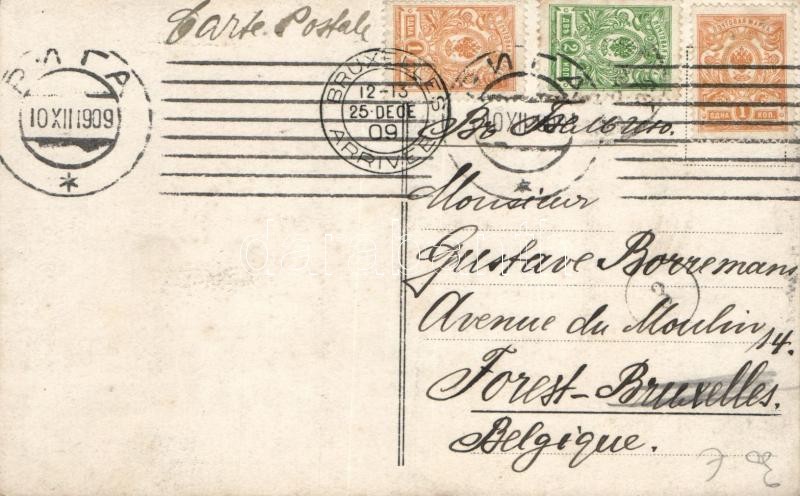 Carte Postale
РИГА
10 XII 1909
BRUXELLES
12-13
25 DECE
09
ARRIVEE
1
ОДНА
2
ДВѢ
ПОЧТОВАЯ МАРКА
1
ОДНА КОП.
Въ Бельгію.
Monsieur
Gustave Borremans
Avenue du Moulin 14.
Forest-Bruxelles.
Belgique.